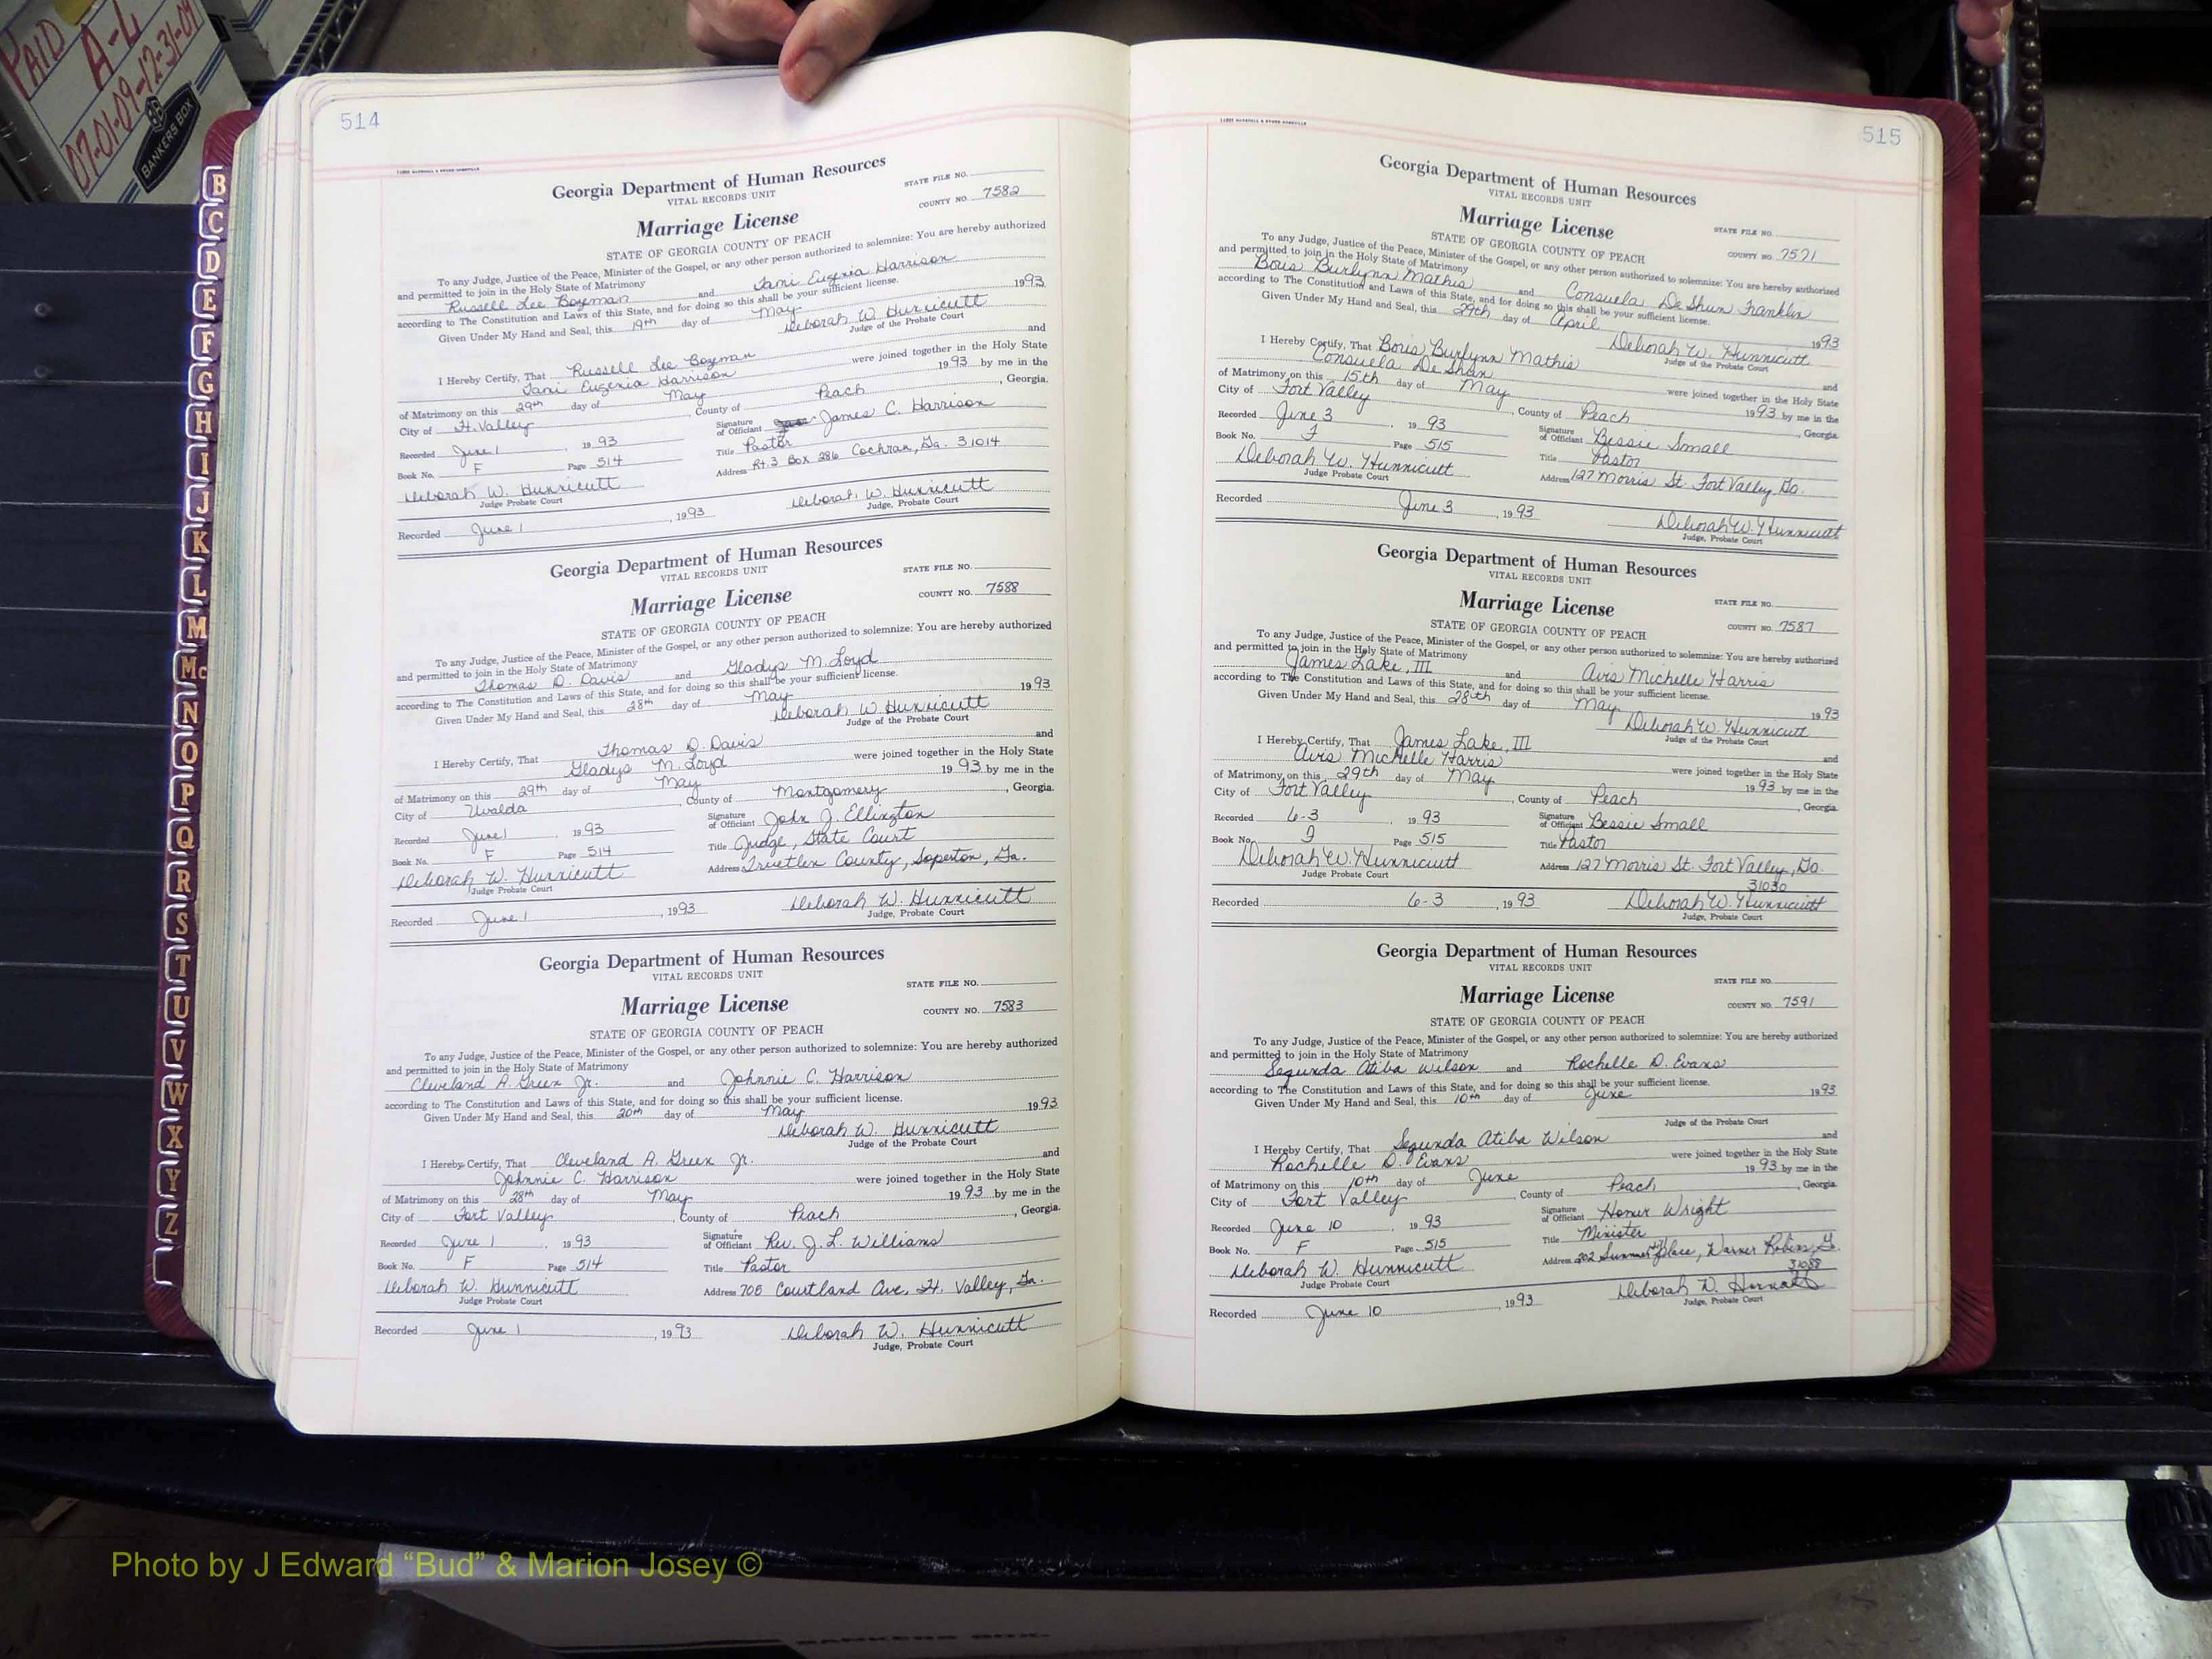 PAID
A-L
07-01-09-12-31-09
BANKERS BOX
B
C
D
E
F
G
H
I
J
K
L
M
Mc
N
O
P
Q
R
S
T
U
V
W
X
Y
Z
514
Georgia Department of Human Resources
VITAL RECORDS UNIT
STATE FILE NO.
COUNTY NO. 7582
Marriage License
STATE OF GEORGIA COUNTY OF PEACH
To any Judge, Justice of the Peace, Minister of the Gospel, or any other person authorized to solemnize: You are hereby authorized
and permitted to join in the Holy State of Matrimony
Russell Lee Bozeman and Tami Eugenia Harrison
according to The Constitution and Laws of this State, and for doing so this shall be your sufficient license.
Given Under My Hand and Seal, this 19th day of May 1993
Deborah W. Hunnicutt
Judge of the Probate Court
I Hereby Certify, That Russell Lee Bozeman and
Tami Eugenia Harrison were joined together in the Holy State
of Matrimony on this 29th day of May 1993 by me in the
City of Ft. Valley, County of Peach, Georgia.
Recorded June 1, 1993 Signature of Officiant James C. Harrison
Book No. F Page 514 Title Pastor
Address Rt. 3 Box 286 Cochran, Ga. 31014
Deborah W. Hunnicutt
Judge Probate Court
Recorded June 1, 1993 Deborah W. Hunnicutt
Judge, Probate Court
Georgia Department of Human Resources
VITAL RECORDS UNIT
STATE FILE NO.
COUNTY NO. 7588
Marriage License
STATE OF GEORGIA COUNTY OF PEACH
To any Judge, Justice of the Peace, Minister of the Gospel, or any other person authorized to solemnize: You are hereby authorized
and permitted to join in the Holy State of Matrimony
Thomas D. Davis and Gladys M. Loyd
according to The Constitution and Laws of this State, and for doing so this shall be your sufficient license.
Given Under My Hand and Seal, this 28th day of May 1993
Deborah W. Hunnicutt
Judge of the Probate Court
I Hereby Certify, That Thomas D. Davis and
Gladys M. Loyd were joined together in the Holy State
of Matrimony on this 29th day of May 1993 by me in the
City of Uvalda, County of Montgomery, Georgia.
Recorded June 1, 1993 Signature of Officiant John J. Ellington
Book No. F Page 514 Title Judge, State Court
Address Truetlen County, Soperton, Ga.
Deborah W. Hunnicutt
Judge Probate Court
Recorded June 1, 1993 Deborah W. Hunnicutt
Judge, Probate Court
Georgia Department of Human Resources
VITAL RECORDS UNIT
STATE FILE NO.
COUNTY NO. 7583
Marriage License
STATE OF GEORGIA COUNTY OF PEACH
To any Judge, Justice of the Peace, Minister of the Gospel, or any other person authorized to solemnize: You are hereby authorized
and permitted to join in the Holy State of Matrimony
Cleveland A. Green Jr. and Johnnie C. Harrison
according to The Constitution and Laws of this State, and for doing so this shall be your sufficient license.
Given Under My Hand and Seal, this 20th day of May 1993
Deborah W. Hunnicutt
Judge of the Probate Court
I Hereby Certify, That Cleveland A. Green Jr. and
Johnnie C. Harrison were joined together in the Holy State
of Matrimony on this 28th day of May 1993 by me in the
City of Fort Valley, County of Peach, Georgia.
Recorded June 1, 1993 Signature of Officiant Rev. J. L. Williams
Book No. F Page 514 Title Pastor
Deborah W. Hunnicutt Address 705 Courtland Ave. Ft. Valley, Ga.
Judge Probate Court
Recorded June 1, 1993 Deborah W. Hunnicutt
Judge, Probate Court
515
Georgia Department of Human Resources
VITAL RECORDS UNIT
Marriage License
STATE FILE NO.
STATE OF GEORGIA COUNTY OF PEACH
COUNTY NO. 7571
To any Judge, Justice of the Peace, Minister of the Gospel, or any other person authorized to solemnize: You are hereby authorized
and permitted to join in the Holy State of Matrimony
Boris Burlynn Mathis and Consuela De Shun Franklin
according to The Constitution and Laws of this State, and for doing so this shall be your sufficient license.
Given Under My Hand and Seal, this 29th day of April 1993
Deborah W. Hunnicutt
Judge of the Probate Court
I Hereby Certify, That Boris Burlynn Mathis and
Consuela De Shan were joined together in the Holy State
of Matrimony on this 15th day of May 1993 by me in the
City of Fort Valley, County of Peach, Georgia
Recorded June 3, 1993 Signature of Officiant Bessie Small
Book No. F Page 515 Title Pastor
Deborah W. Hunnicutt Address 127 Morris St. Fort Valley, Ga.
Judge Probate Court
Recorded June 3, 1993 Deborah W. Hunnicutt
Judge, Probate Court
Georgia Department of Human Resources
VITAL RECORDS UNIT
Marriage License
STATE FILE NO.
STATE OF GEORGIA COUNTY OF PEACH
COUNTY NO. 7587
To any Judge, Justice of the Peace, Minister of the Gospel, or any other person authorized to solemnize: You are hereby authorized
and permitted to join in the Holy State of Matrimony
James Lake, III and Avis Michelle Harris
according to The Constitution and Laws of this State, and for doing so this shall be your sufficient license.
Given Under My Hand and Seal, this 28th day of May 1993
Deborah W. Hunnicutt
Judge of the Probate Court
I Hereby Certify, That James Lake, III and
Avis Michelle Harris were joined together in the Holy State
of Matrimony on this 29th day of May 1993 by me in the
City of Fort Valley, County of Peach, Georgia
Recorded 6-3, 1993 Signature of Officiant Bessie Small
Book No. F Page 515 Title Pastor
Deborah W. Hunnicutt Address 127 Morris St. Fort Valley, Ga.
Judge Probate Court 31030
Recorded 6-3, 1993 Deborah W. Hunnicutt
Judge, Probate Court
Georgia Department of Human Resources
VITAL RECORDS UNIT
STATE FILE NO.
Marriage License
COUNTY NO. 7591
STATE OF GEORGIA COUNTY OF PEACH
To any Judge, Justice of the Peace, Minister of the Gospel, or any other person authorized to solemnize: You are hereby authorized
and permitted to join in the Holy State of Matrimony
Segunda Atiba Wilson and Rochelle D. Evans
according to The Constitution and Laws of this State, and for doing so this shall be your sufficient license.
Given Under My Hand and Seal, this 10th day of June 1993
Judge of the Probate Court
I Hereby Certify, That Segunda Atiba Wilson and
Rochelle D. Evans were joined together in the Holy State
of Matrimony on this 10th day of June 1993 by me in the
City of Fort Valley, County of Peach, Georgia
Recorded June 10, 1993 Signature of Officiant Homer Wright
Book No. F Page 515 Title Minister
Deborah W. Hunnicutt Address 202 Place, Warner Robins, G.
Judge Probate Court 31088
Recorded June 10, 1993 Deborah W. Hunnicutt
Judge, Probate Court
Photo by J Edward “Bud” & Marion Josey ©